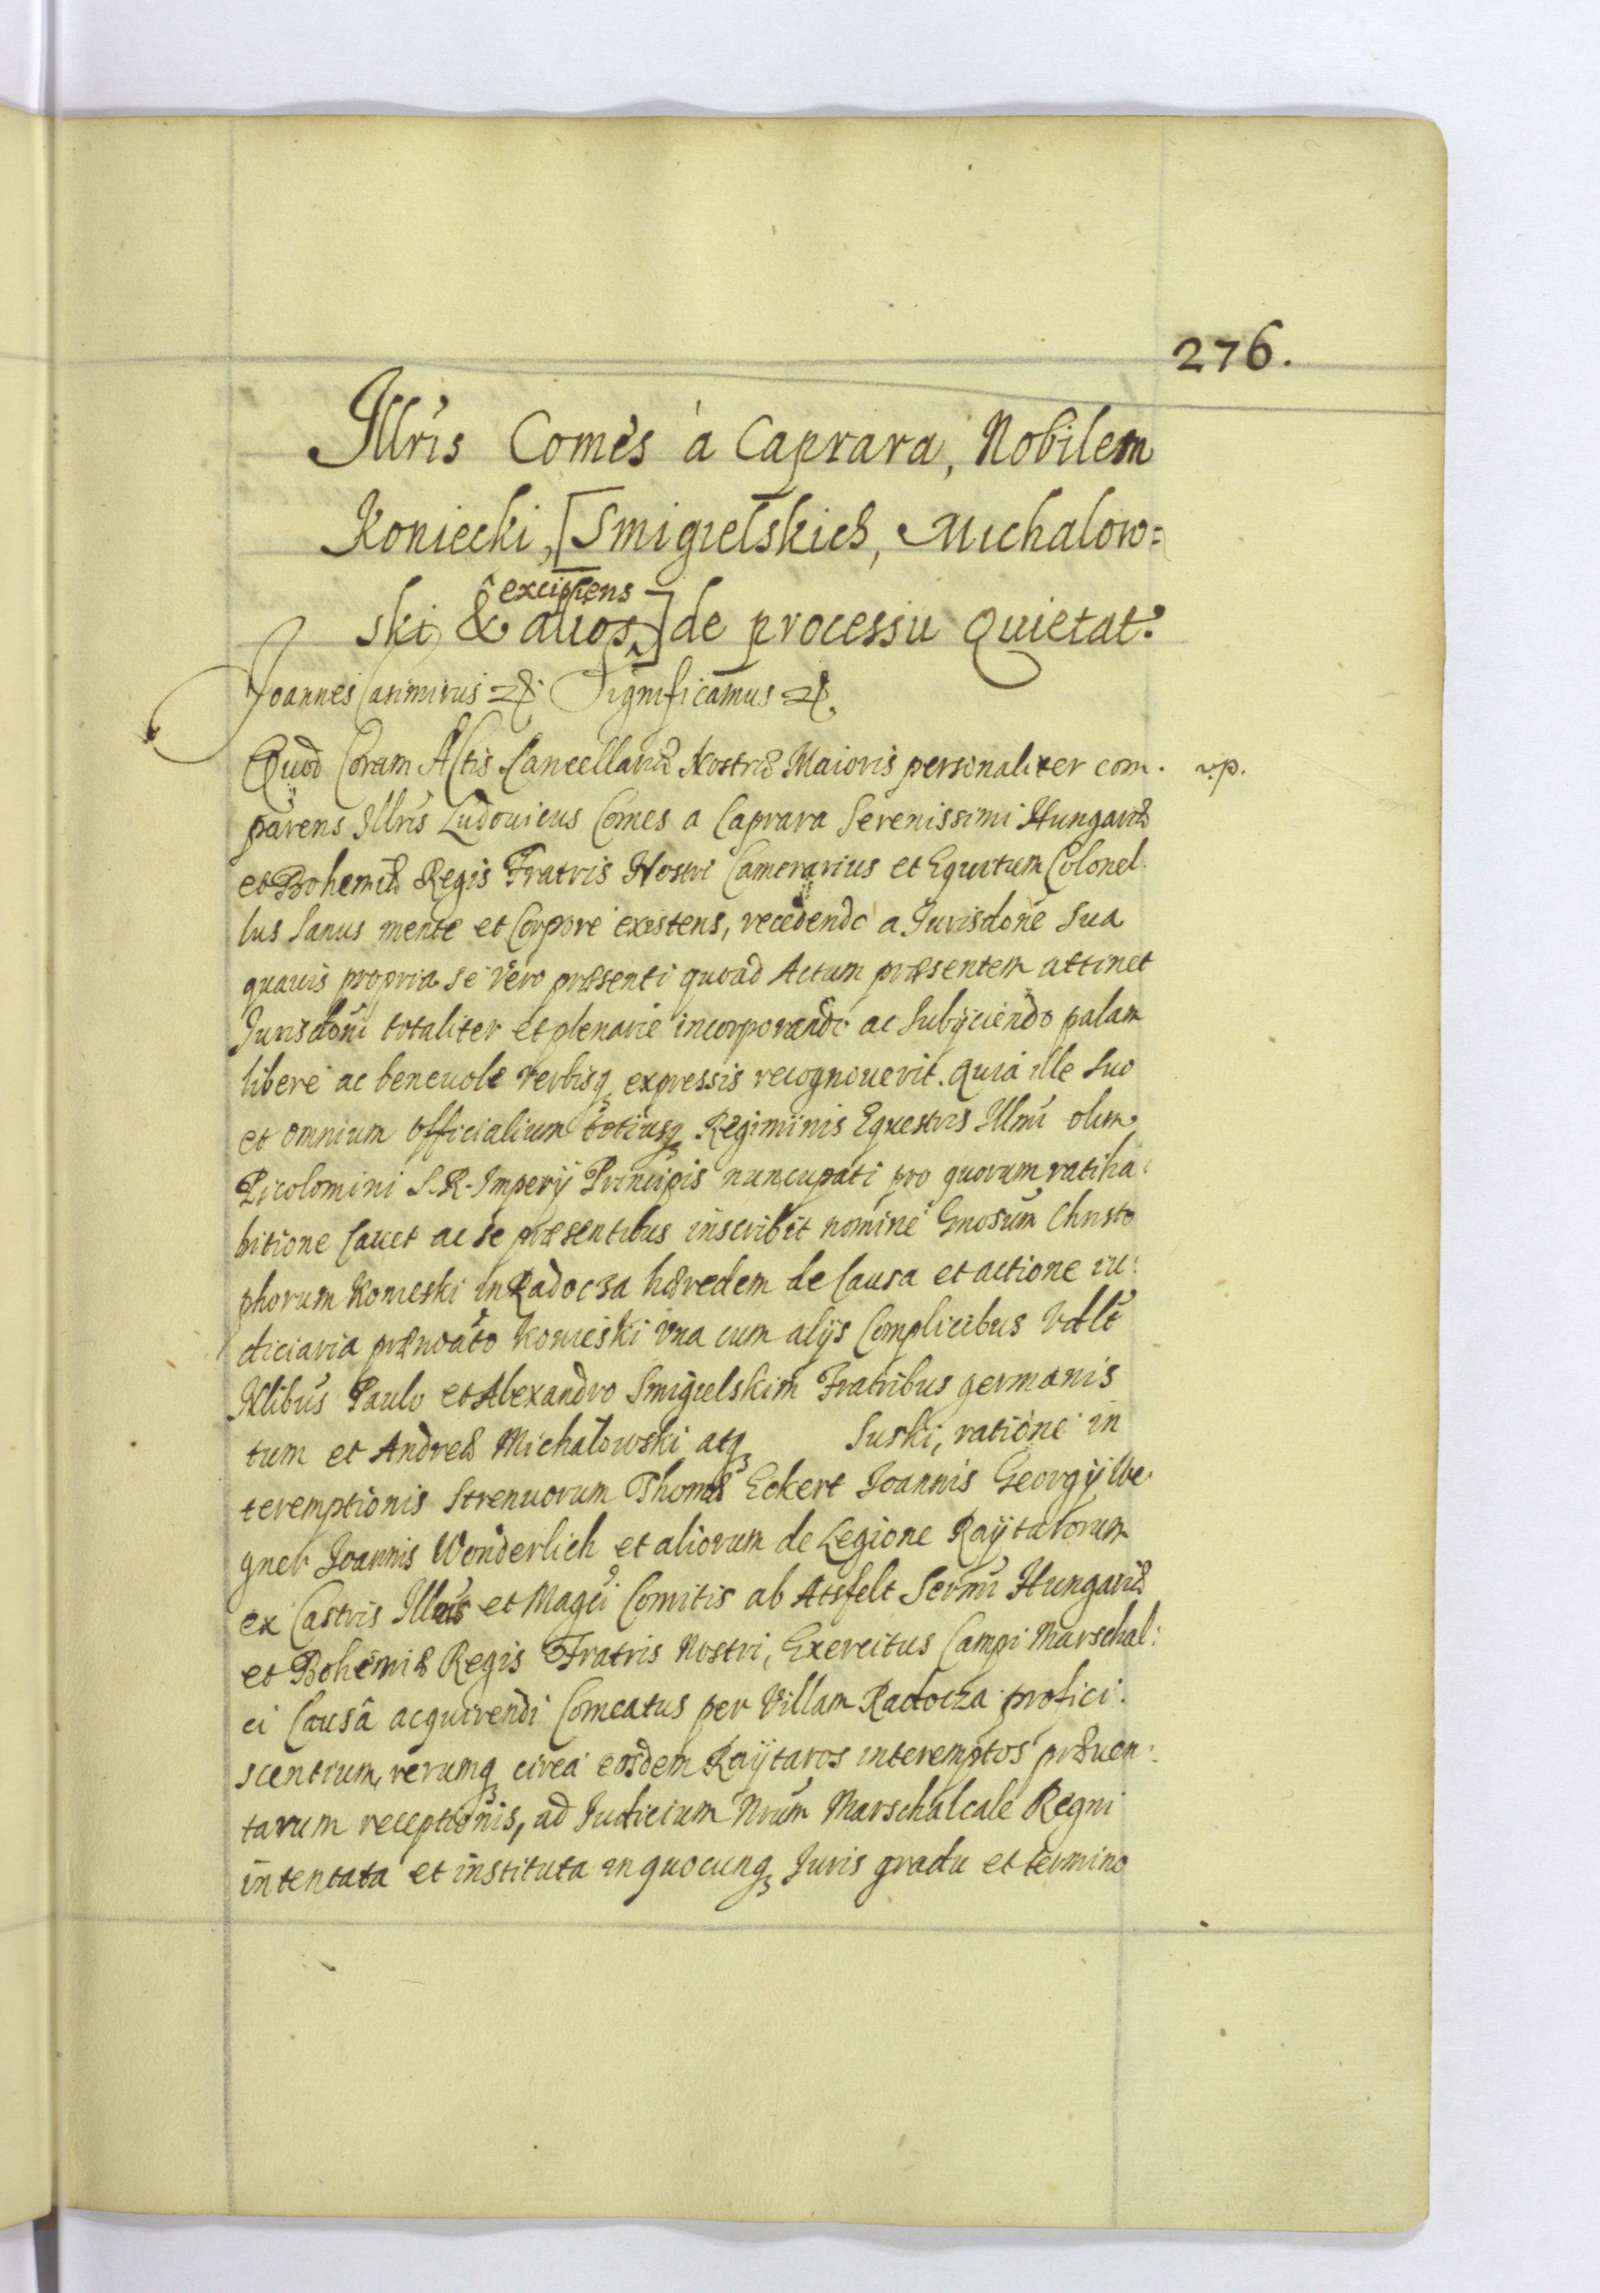 276.
Jllris Comes à Caprara, Nobilem
Koniecki, [Smigielskich, Michalow=
ski & alios, excipiens] de processu Quietat.
Joannes Casimirus etc. Significamus etc.
Quod Coram Actis Cancellariæ Nostræ Maioris personaliter com. rp.
parens Jllris Ludouicus Comes a Caprara Serenissimi Hungariæ
et Bohemiæ Regis Fratris Nostri Camerarius et Equitum Colonel
lus Sanus mente et Corpore existens, recedendo a Jurisdone Sua
quauis propria se vero præsenti quoad Actum præsentem attinet
Jurisdoni totaliter et plenarie incorporando ac Subijciendo palam
libere ac beneuole verbisq expressis recognouerit. Quia ille Suo
et omnium Officialium totiusq Regiminis Equestris Jllmi olim
Picolomini S. R. Imperij Principis nuncupati pro quorum ratiha
bitione Cauet ac se præsentibus inscribit nomine Gnosum Christo
phorum Konieski in Radocza hæredem de Causa et actione iu:
diciaria prænoato Konieski vna cum alijs Complicibus vdlt
Nlibus Paulo et Alexandro Smigielskim Fratribus germanis
tum et Andreæ Michalowski atq Suski, ratione in
teremptionis Strenuorum Thomæ Eckert Joannis Georgij We
gner Joannis Wonderlich et aliorum de Legione Raÿtarorum
ex Castris Jllris et Magci Comitis ab Atsfelt Sermi Hungariæ
et Bohemiæ Regis Fratris Nostri, Exercitus Campi Marschal:
ci Causâ acquirendi Comeatus per Villam Radocza profici.
scentium, rerumq circa eosdem Raÿtaros interemptos præuen:
tarum receptionis, ad Judicium Nrum Marschalcale Regni
intentata et instituta in quocunq Juris gradu et termino